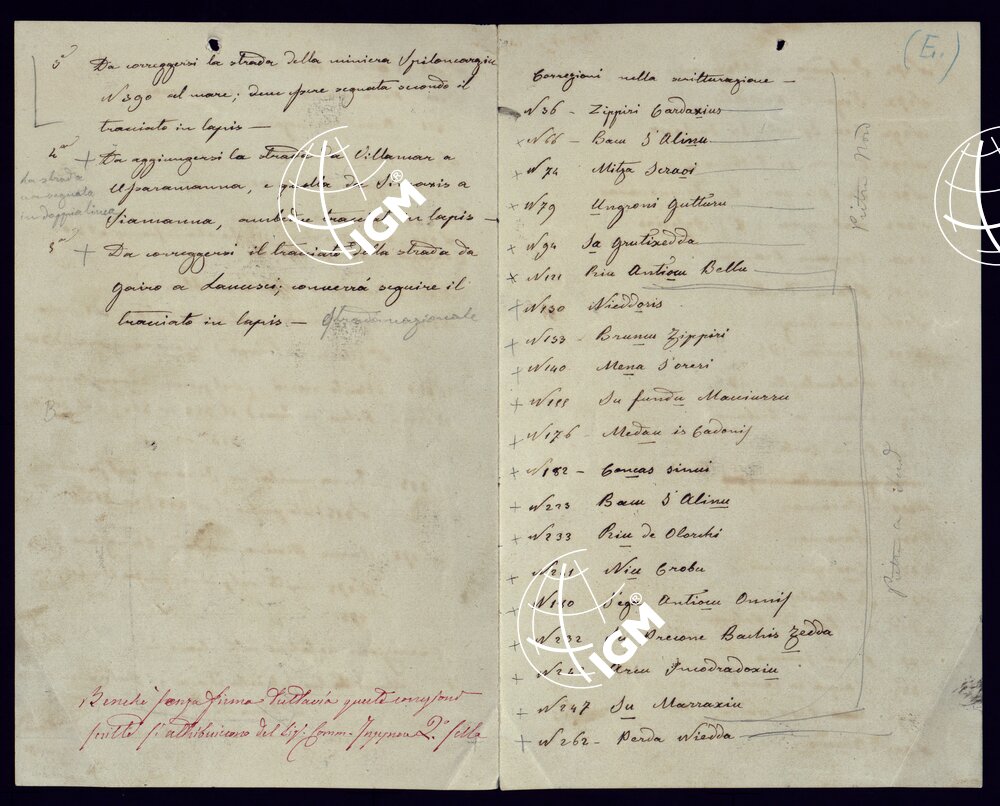 3°
Da correggersi la strada della miniera Spiloncargiu
N 390 al mare; deve essere segnata secondo il
tracciato in lapis —
4° + Da aggiungersi la strada da Villamar a
Uparamanna, e quella da Simaxis a
Siamanna, ambedue tracciate in lapis —
La strada
va segnata
in doppia linea
5° + Da correggersi il tracciato della strada da
Gairo a Lanusei; converrà seguire il
tracciato in lapis — Strada nazionale
B
Benchè senza firma tuttavia queste correz.
scritte si attribuiscono del Sig. Comm. Ingegnere Q. Sella
(E.)
Correzioni nella scritturazione —
N 36 - Zippiri Cardaxius
+ N 66 - Bacu S'Alinu
+ N 74 Mitza Seraoi
+ N 79 Ungroni Gutturu
+ N 94 Sa Grutixedda
+ N 121 Riu Antiocu Bellu
Pietra Nord
+ N 130 Nieddoris
+ N 133 - Bruncu Zippiri
+ N 140 Mena S'oreri
+ N 155 Su fundu Maciurru
+ N 176 - Medau is Cadonis
+ N 182 - Concas sinui
+ N 223 Bacu S'Alinu
+ N 233 Riu de Olorchi
+ Niu Crobu
+ S'ega Antiocu Onnis
+ N 232 Su Precione Bachis Zedda
+ Arcu Incodradoxiu
+ N 247 Su Marraxiu
+ N 262 - Perda Niedda
Pietra a sud
IGM®
IGM®